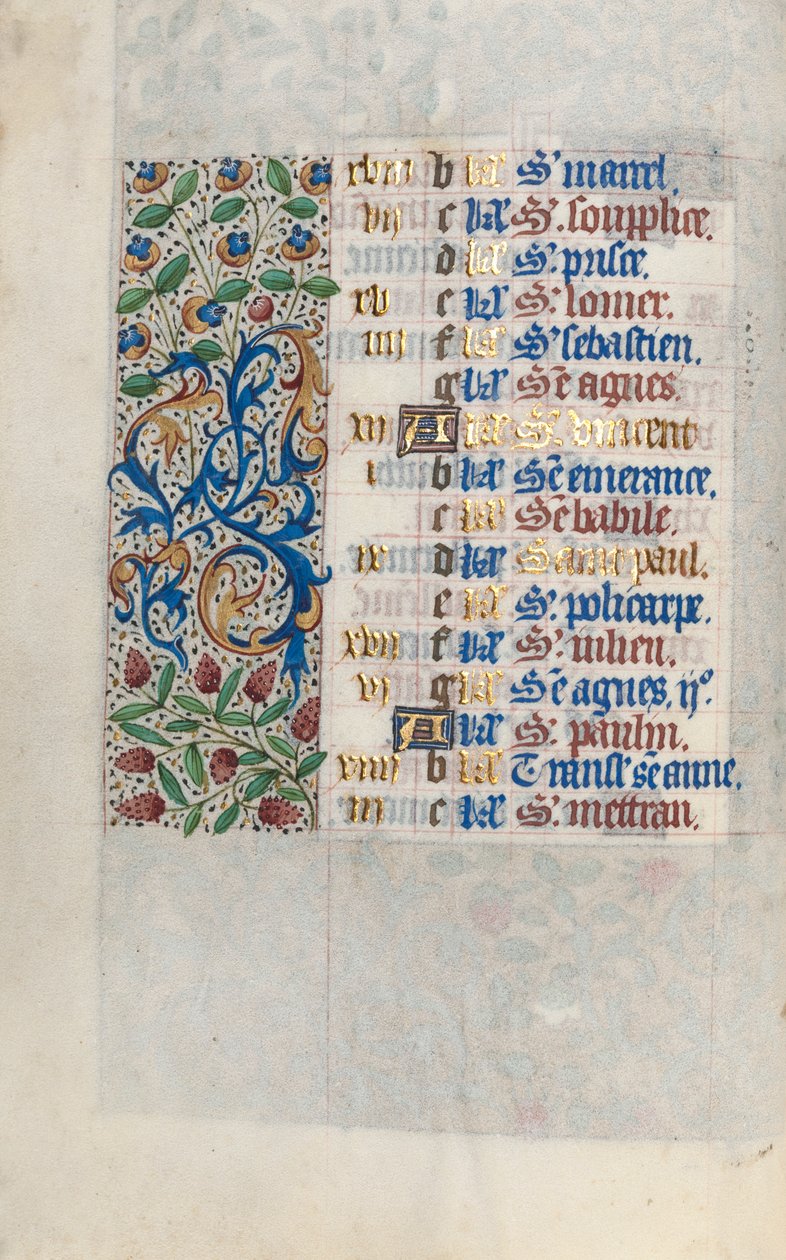 xviii b kł S' marcel.
vij c kł S'. soupplice.
d kł S' prisce.
xv e kł S' lomer.
iiij f kł S' sebastien.
g kł Sẽ agnes.
xij A kł S' vincent
i b kł Sẽ emerance.
c kł Sẽ babile.
ix d kł Saint paul.
e kł S'. policarpe.
xvij f kł S' iulien.
vj g kł Sẽ agnes. ijº.
A kł S'. paulin.
xiiij b kł Transl' sẽ anne.
iij c kł S'. mettran.